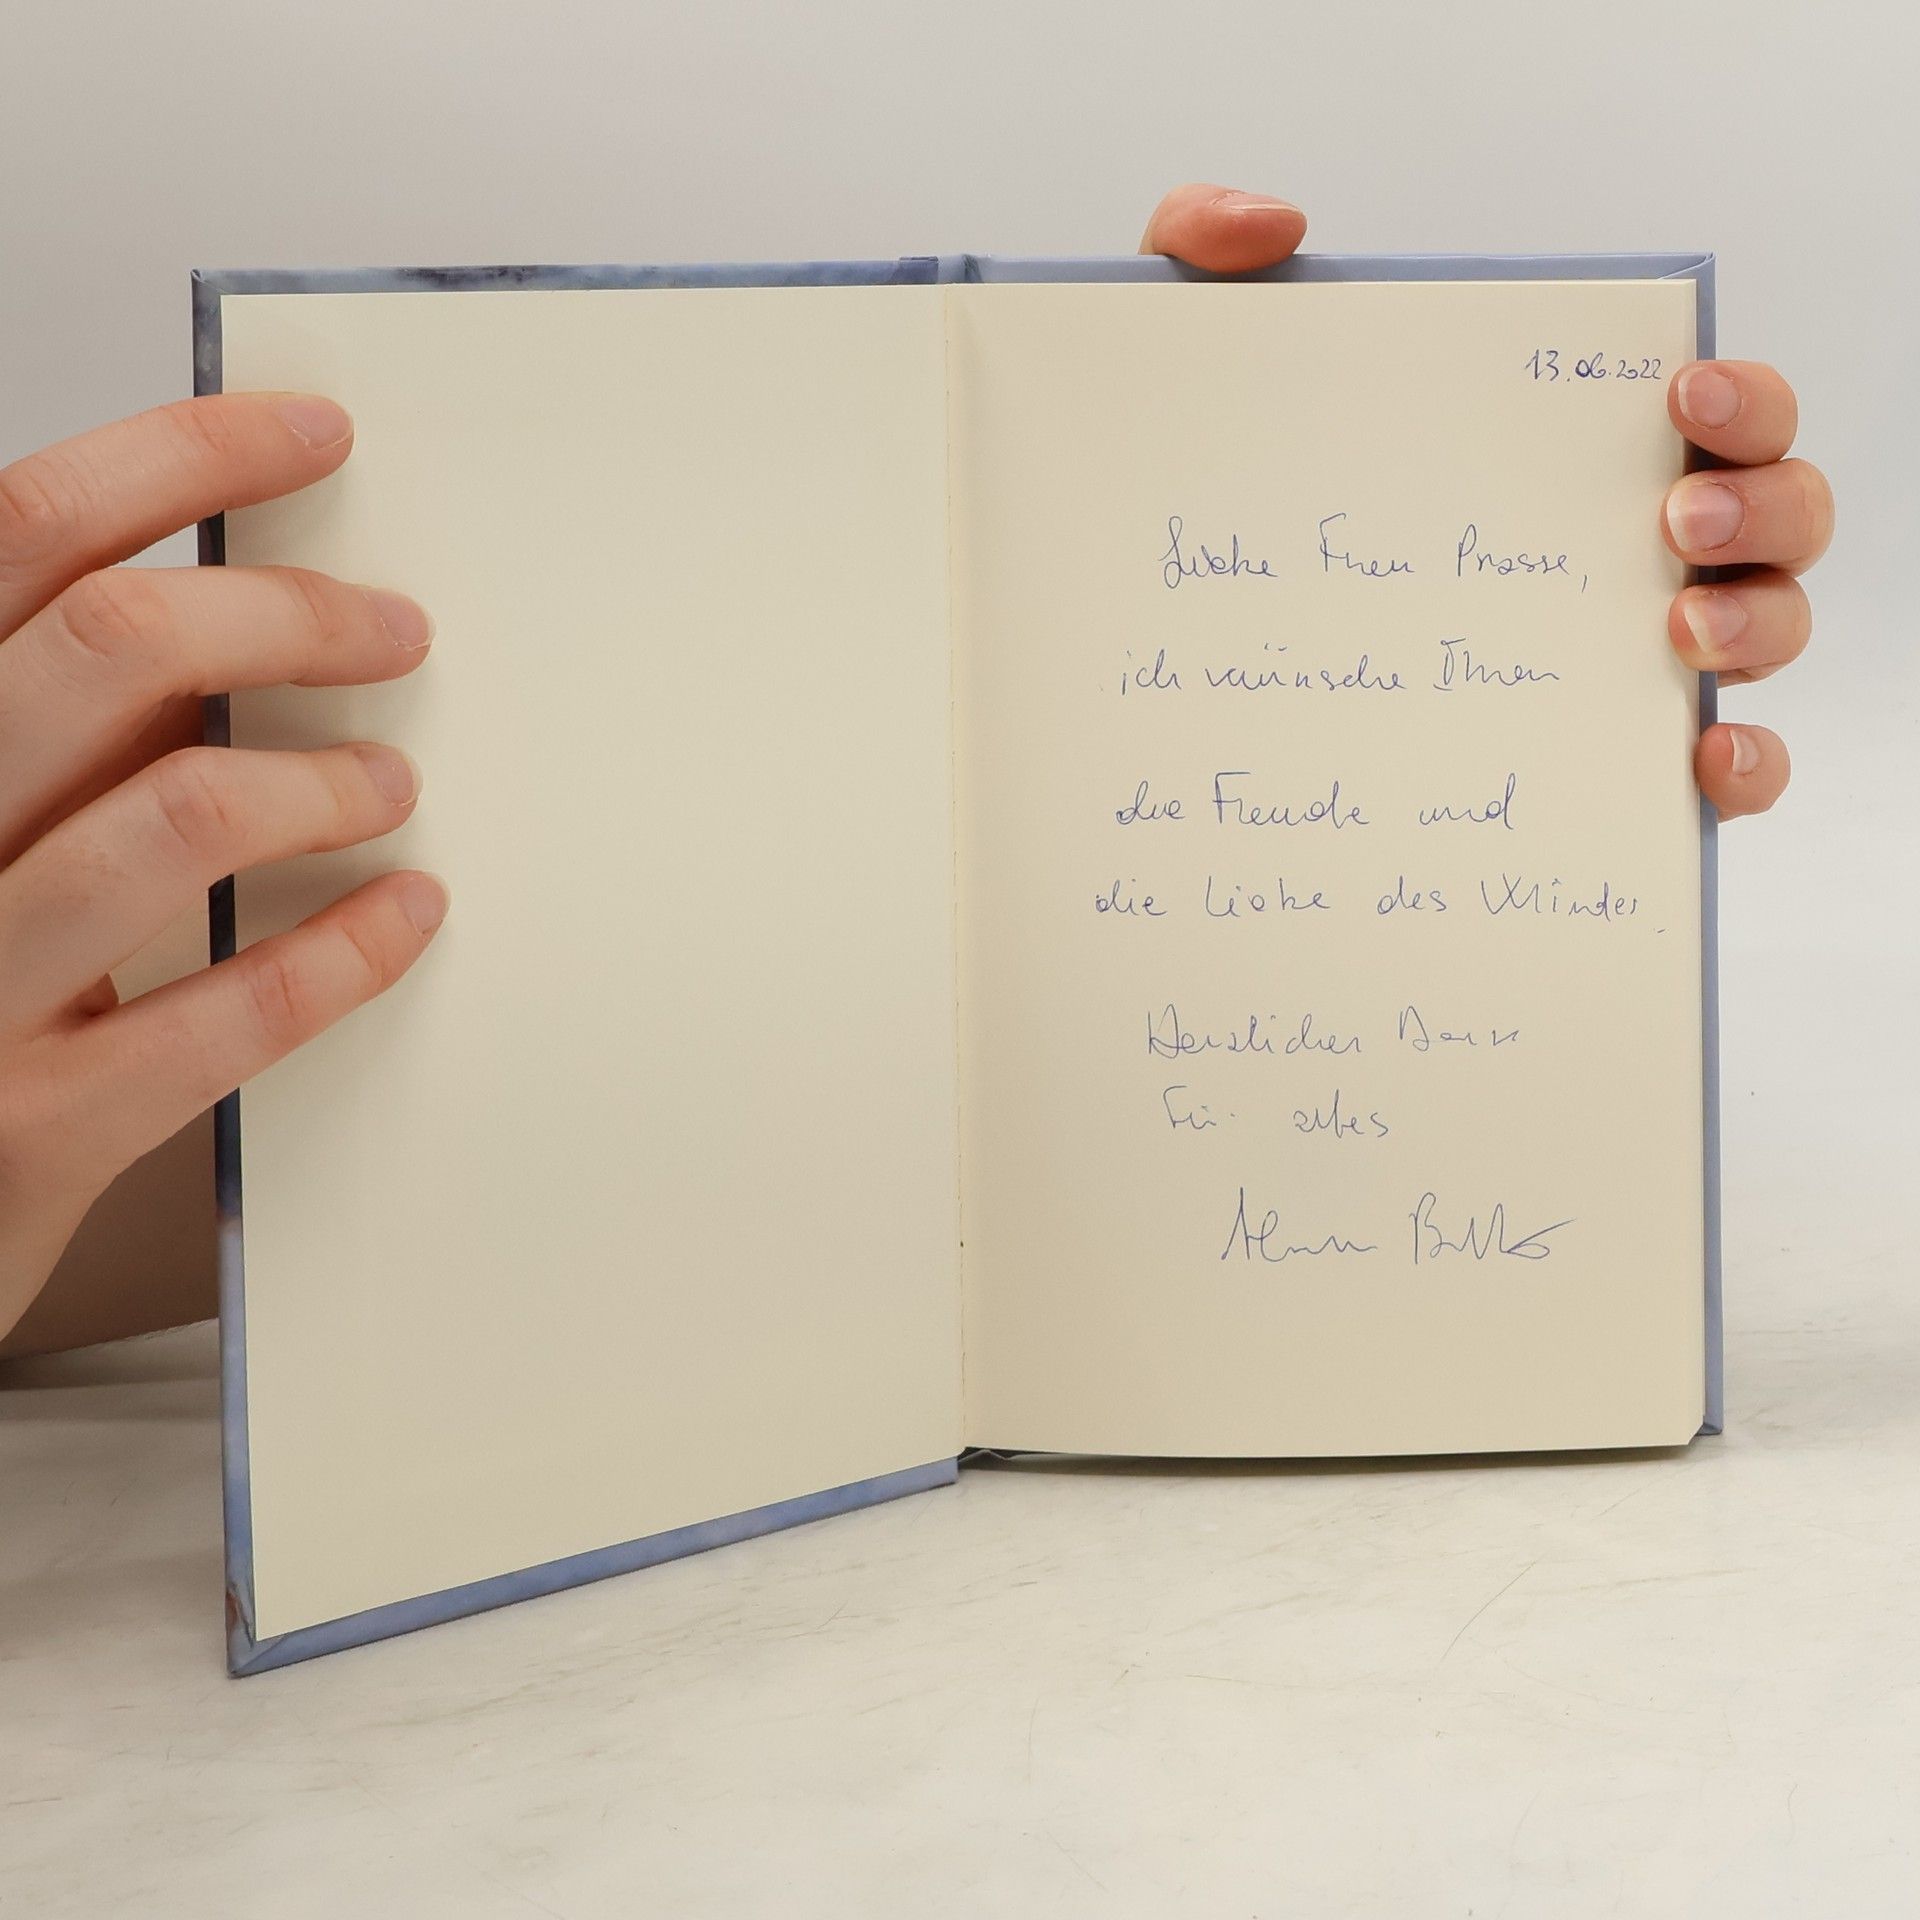 13.06.2022
Liebe Frau Prasse,
ich wünsche Ihnen
die Freude und
die Liebe des
Herzlichen Dank
Für alles